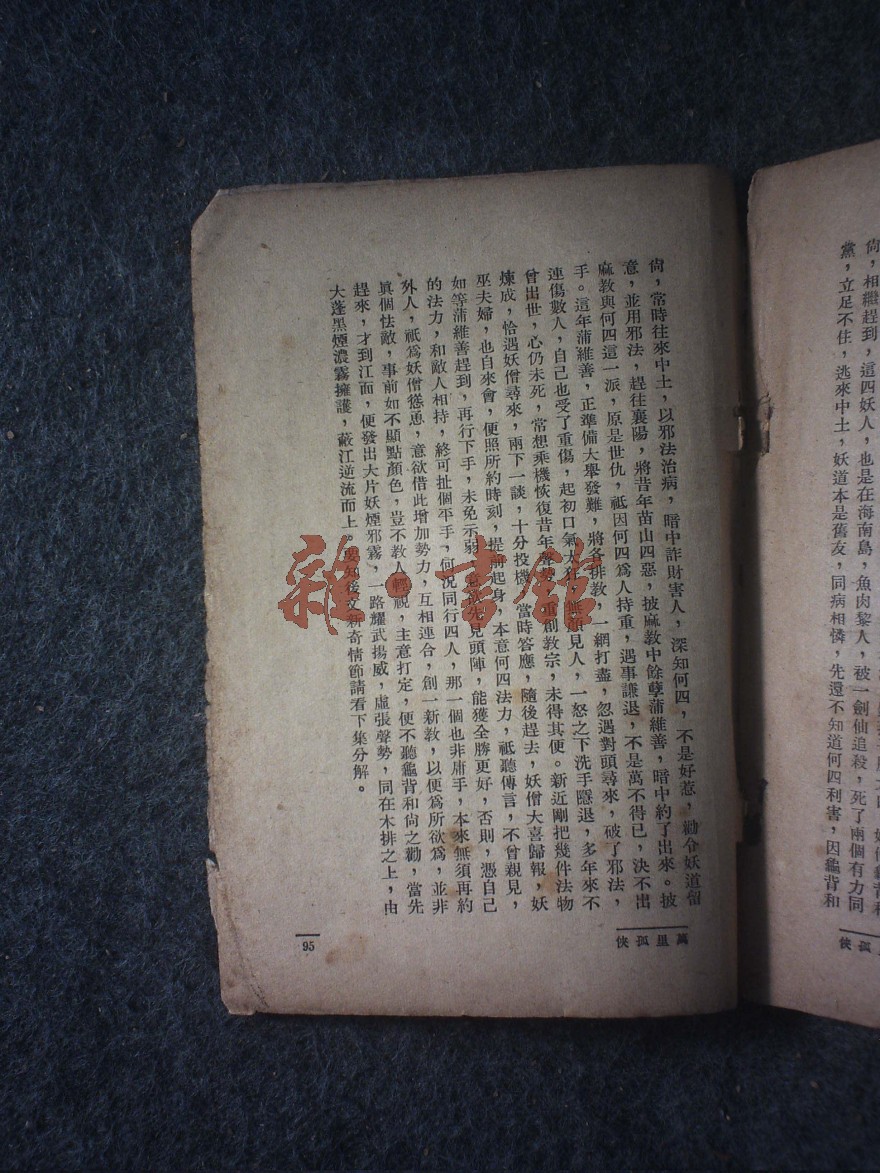 尙，相繼趕到，這四妖人，也是在海南島，魚肉黎人，被一劍仙追殺，死了兩個有力同
黨，立足不住，逃來中土，妖道本是舊友，同病相憐，先還不知道何四利害，因龜背和
尙，常時往來中土，以邪法治病，暗中詐財害人，深知何四，不是好惹，勸令妖道留
意，並用邪法，趕往襄陽，將昔年苗山四惡，披麻教中餘孽蒲維善，暗中約了出來。披
麻教與何四這一派，原是世仇，祇因何四爲人持重，遇事謙退，不是萬不得已，決不出
手。這年蒲維善，正準備大舉發難，將各排教，一網打盡，忽遇對頭尋來，破了邪法，
連傷數人，自己也受了重傷，起初口氣太狂，無顏見人，一怒之下洗手隱退，多年來不
曾出世，心仍未死，常想乘機恢復昔年聲勢，重創教宗，未得其便。新近剛把幾件法物
煉成，恰遇妖僧尋來，兩下一談，十分投機，當時答應，隨後趕去，妖僧大喜歸報，妖
巫夫婦，也自來會，便照所約時刻，提前起身，本意何四法力，祇聽傳言，不曾親見，
如等蒲維善趕到，再行下手，未免示弱，意欲先見頭陣，能獲全勝更好，否則，憑自己
的法力，和敵人相持，終可扯個平手，何況同行四人，那一個也非庸手，本來無須再約
外人，祇爲妖僧慫恿，意欲借此增加勢力，互相連合，創一新教，以便爲所欲爲，並非
眞個怯敵，事前如不顯點顏色，豈不教人輕視，主意打定，便不聽龜背和尙之勸，當先
趕來，才到江面，便發出大片妖煙邪霧，一路耀武揚威，虛張聲勢，同在木排之上，由
大蓬黑煙濃霧擁護，蔽江逆流而上。要知後文新奇情節請看下集分解。
萬里孤俠
95
雜·書館